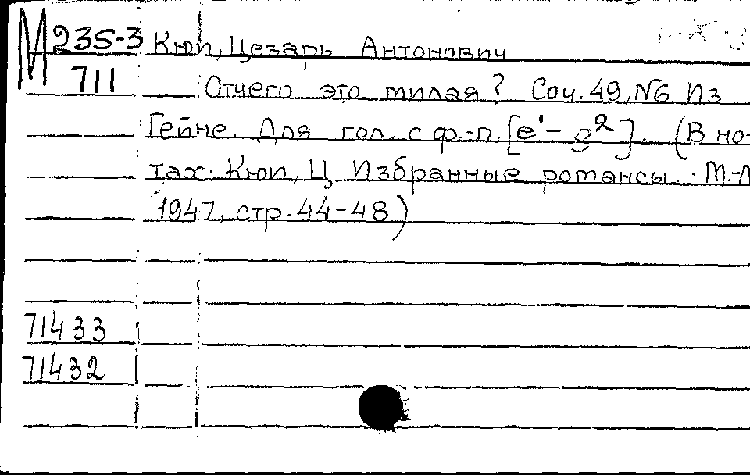 М 235-3 Кюи, Цезарь Антонович
711 Отчего это милая? Соч. 49, №6 Из
Гейне. Для гол. с ф.-п. [e¹ - g²]. (В но-
тах: Кюи, Ц. Избранные романсы. М-Л
1947, стр. 44-48)
71433
71432